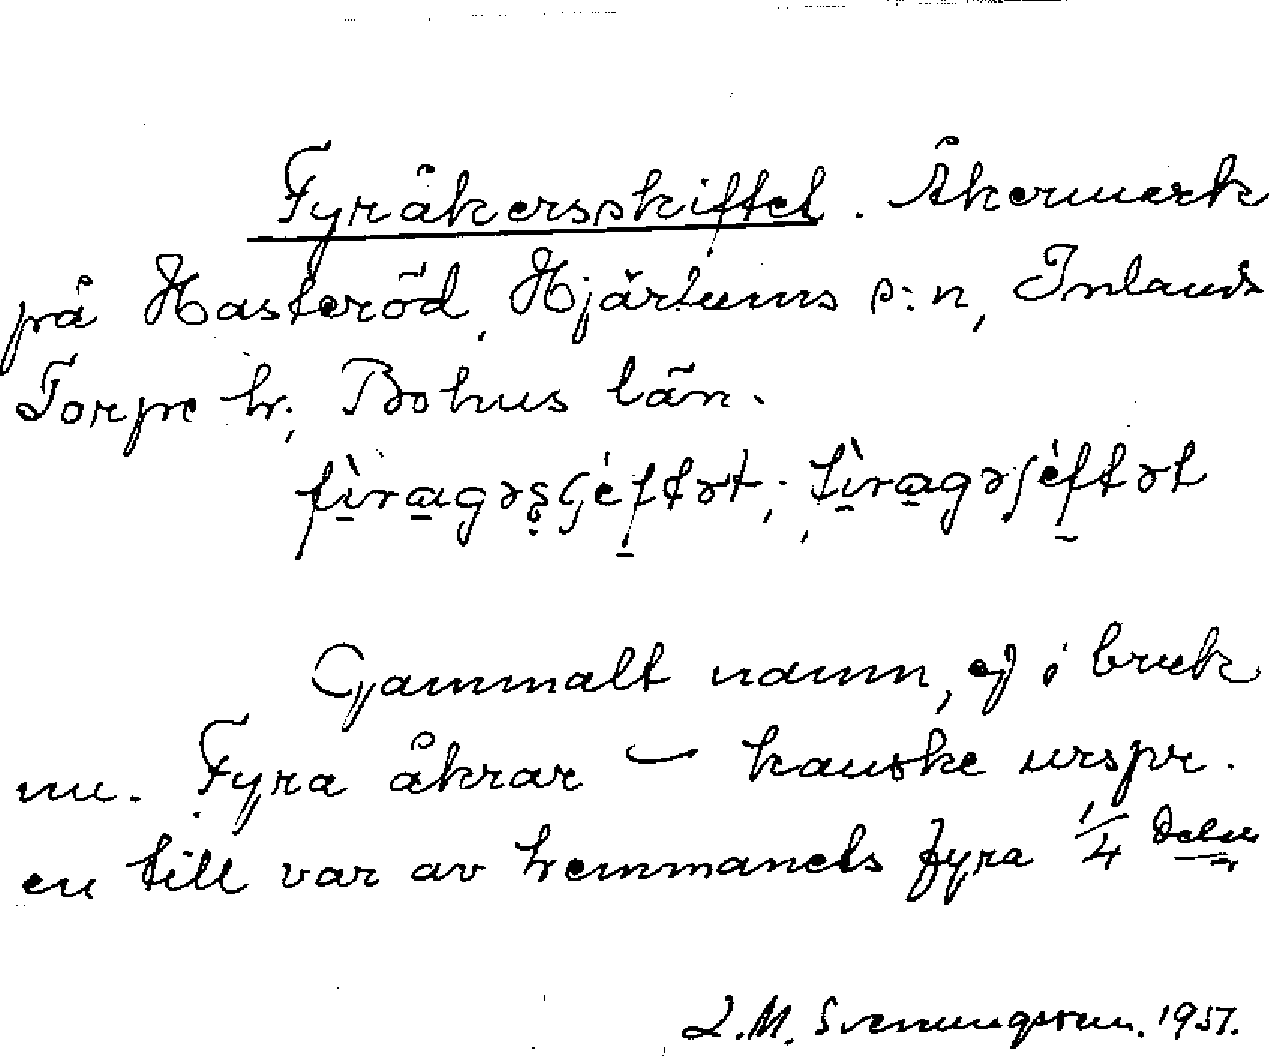 Fyråkersskiftet. Åkermark
på Hasteröd, Hjärtums s:n, Inlands
Torpe hr, Bohus län.
Gammalt namn, ej i bruk
nu. Fyra åkrar – kanske urspr.
en till var av hemmanets fyra 1/4 delar
L.M. Svenungsson. 1957.